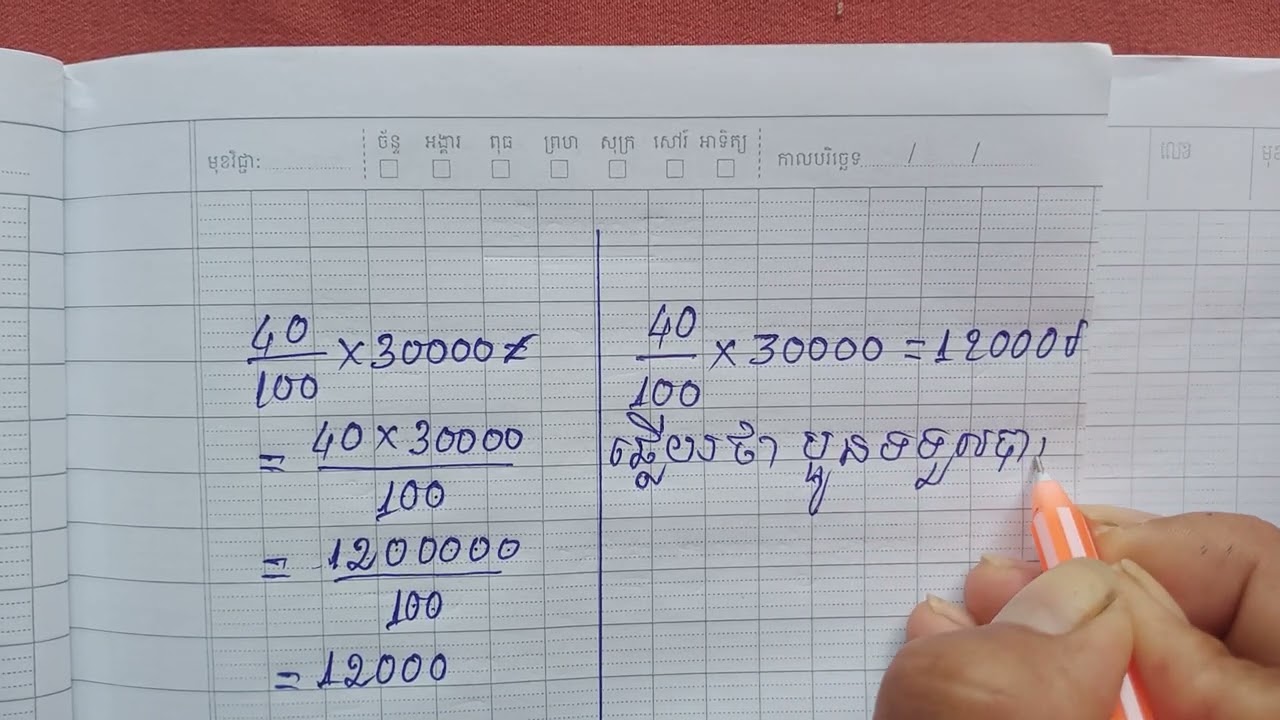 មុខវិជ្ជា:
ច័ន្ទ អង្គារ ពុធ ព្រហ សុក្រ សៅរ៍ អាទិត្យ
កាលបរិច្ឆេទ / /
លេខ
40/100 × 30000
= 40 × 30000/100
= 1200000/100
= 12000
40/100 × 30000 = 12000៛
ឆ្លើយថា ប្អូនទទួលបា